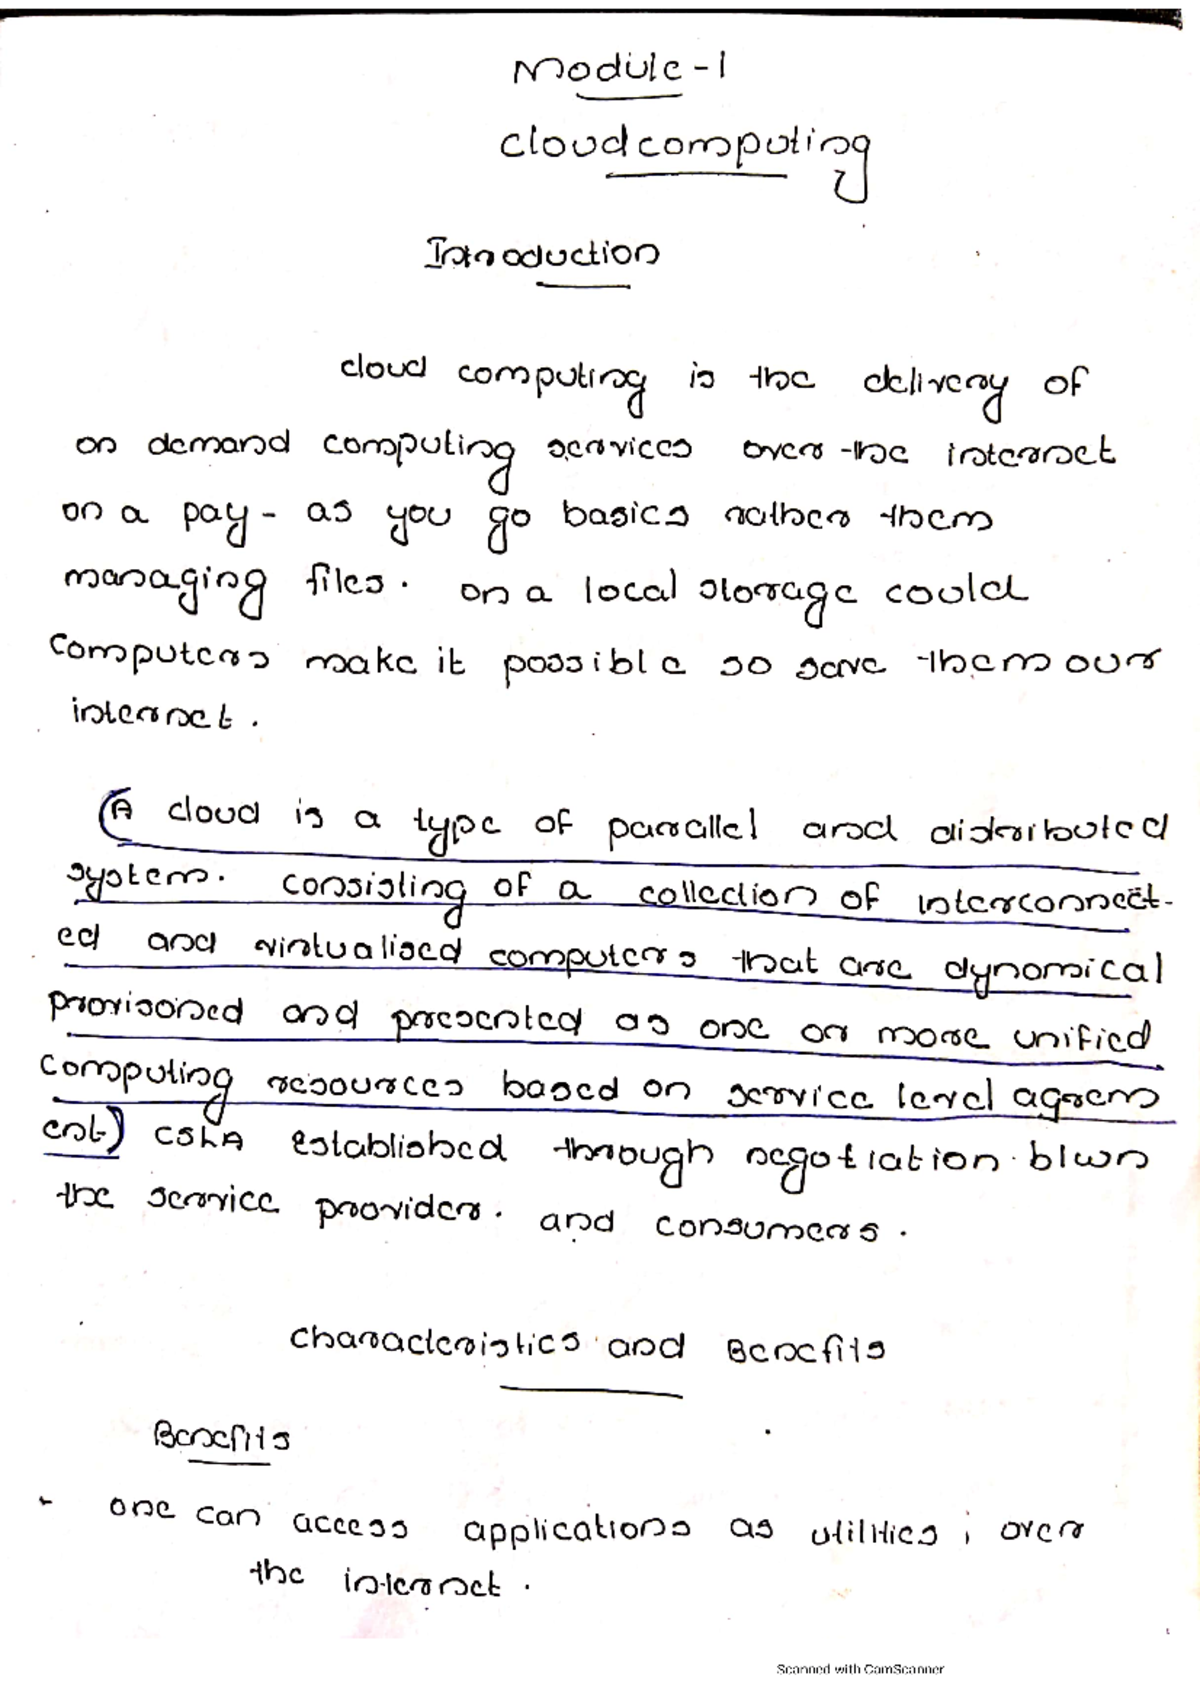 Module - 1
cloud computing
Introduction
cloud computing is the delivery of
on demand computing services over the internet
on a pay - as you go basics rather them
managing files. on a local storage could
Computers make it possible so save them our
internet.
(A cloud is a type of parallel and distributed
system. consisting of a collection of interconnect-
ed and virtualised computers that are dynomical
provisoned and presented as one or more unified
computing resources based on service level agreem
ent) CSLA established through negotiation btwn
the service provider. and consumers.
characteristics and Benefits
Benefits
- one can access applications as utilities ; over
the internet.
Scanned with CamScanner